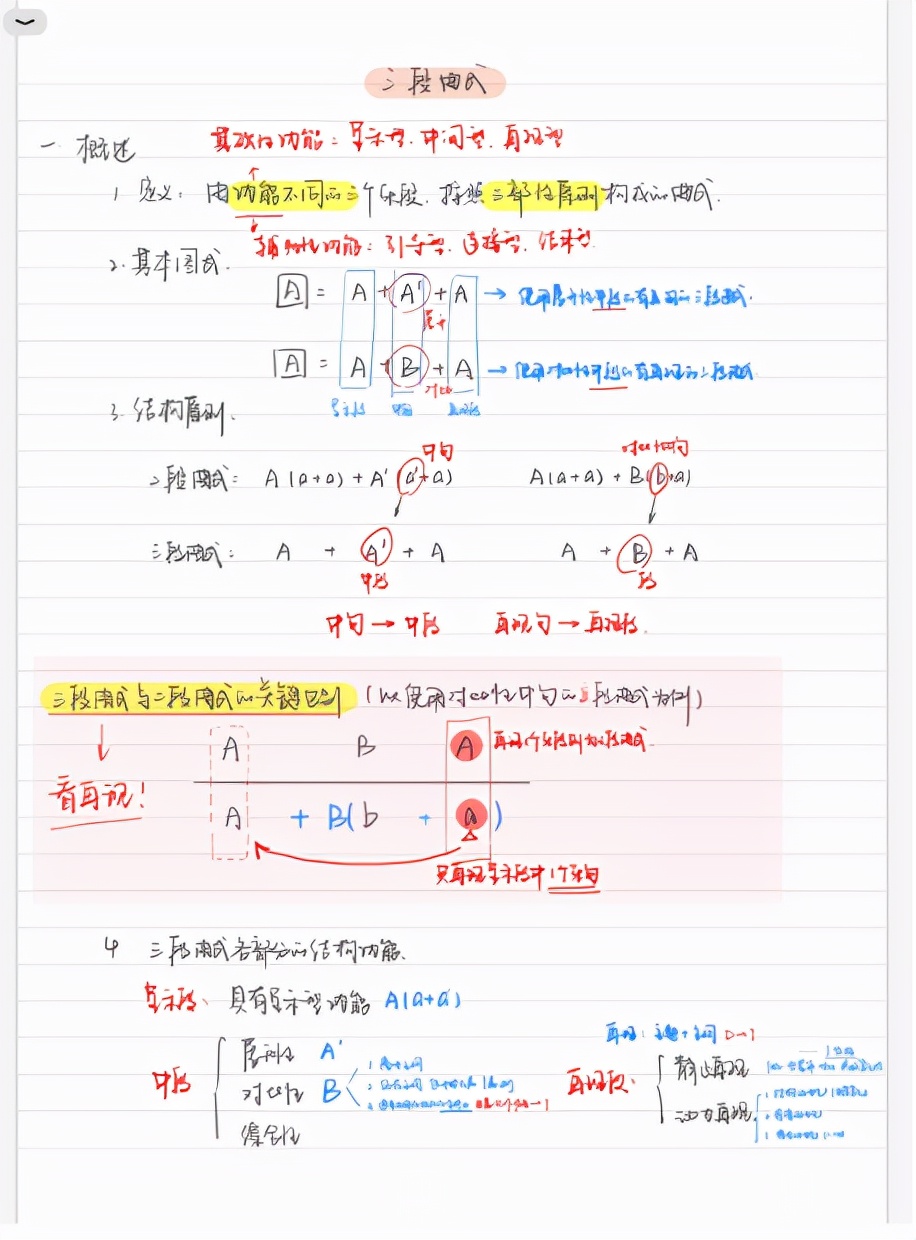 三段曲式
一 概述
基础性功能：呈示型、中间型、再现型
1. 定义：由功能不同的三个乐段，按照三部性原则构成的曲式.
辅助性功能：引导型、连接型、结束型.
2. 基本图式.
A = A + A' + A → 使用展开性中段的有再现的三段曲式.
展开
A = A + B + A → 使用对比性中段的有再现的三段曲式
对比
呈示段 中段 再现段
3. 结构原则.
中句 对比中句
二段曲式：A (a+a) + A' (a'+a) A (a+a) + B (b+a)
三段曲式： A + A' + A A + B + A
中段 段
中句 → 中段 再现句 → 再现段.
三段曲式与二段曲式的关键区别（以使用对比性中句的三段曲式为例）
A B A 再现个乐段则为三段曲式
看再现！
A + B(b + a)
只再现呈示段中1个乐句
4 三段曲式各部分的结构功能.
呈示段、具有呈示型功能 A(a+a')
再现：主题+主调 D→T
中段 展开性 A' 再现段： 静止再现
对比性 B 动力再现
综合性